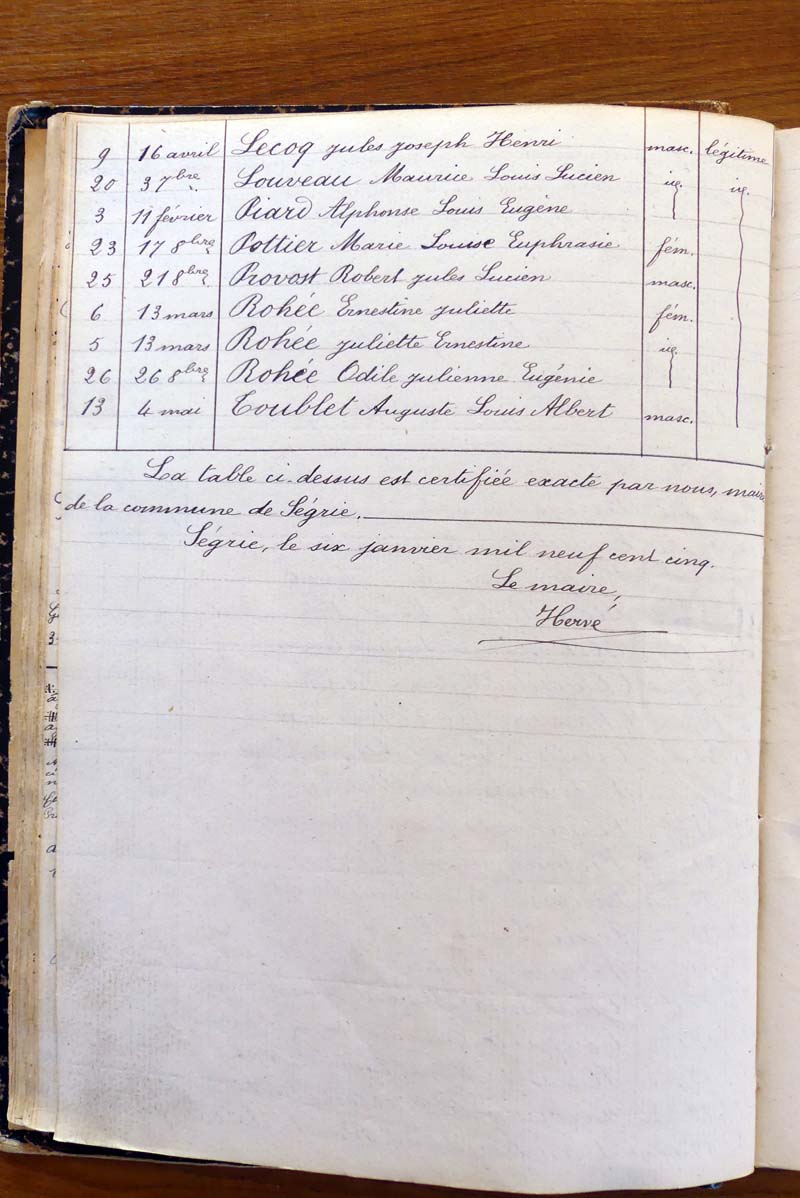 9 16 avril Lecoq Jules Joseph Henri masc. légitime
20 3 7bre Louveau Maurice Louis Lucien id. id.
3 11 février Piard Alphonse Louis Eugène
23 17 8bre Pottier Marie Louise Euphrasie fém.
25 21 8bre Provost Robert Jules Lucien masc.
6 13 mars Rohée Ernestine Juliette fém.
5 13 mars Rohée Juliette Ernestine id.
26 26 8bre Rohée Odile Julienne Eugénie
13 4 mai Toublet Auguste Louis Albert masc.
La table ci-dessus est certifiée exacte par nous, maire
de la commune de Ségrie.
Ségrie, le six janvier mil neuf cent cinq.
Le maire,
Hervé